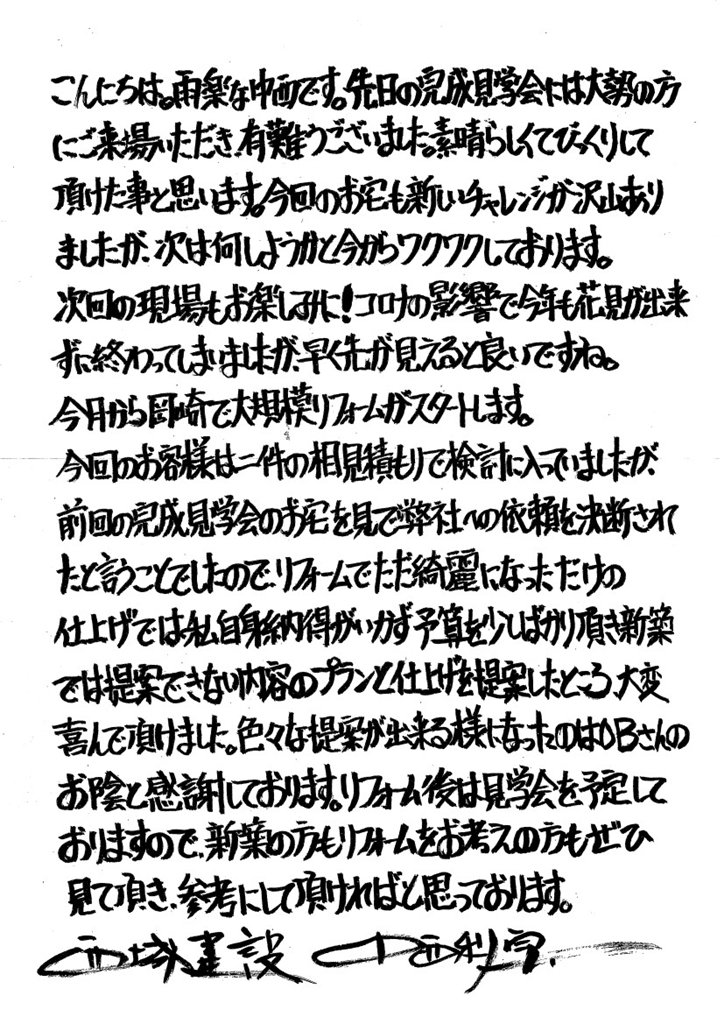 こんにちは。雨楽な中西です。先日の完成見学会には大勢の方
にご来場いただき、有難うございました。素晴らしくてびっくりして
頂けた事と思います。今回のお宅も新しいチャレンジが沢山あり
ましたが、次は何しようかと今からワクワクしております。
次回の現場もお楽しみに!コロナの影響で今年も花見が出来
ずに終わってしまいましたが、早く先が見えると良いですね。
今月から岡崎で大規模リフォームがスタートします。
今回のお客様は二件の相見積もりで検討に入っていましたが、
前回の完成見学会のお宅を見て弊社への依頼を決断され
たと言うことでしたので、リフォームでただ綺麗になっただけの
仕上げでは私自身納得がいかず予算を少しばかり頂き新築
では提案できない内容のプランと仕上げを提案したところ、大変
喜んで頂けました。色々な提案が出来る様になったのはOBさんの
お陰と感謝しております。リフォーム後は見学会を予定して
おりますので、新築の方もリフォームをお考えの方もぜひ
見て頂き、参考にして頂ければと思っております。
西城建設 中西利